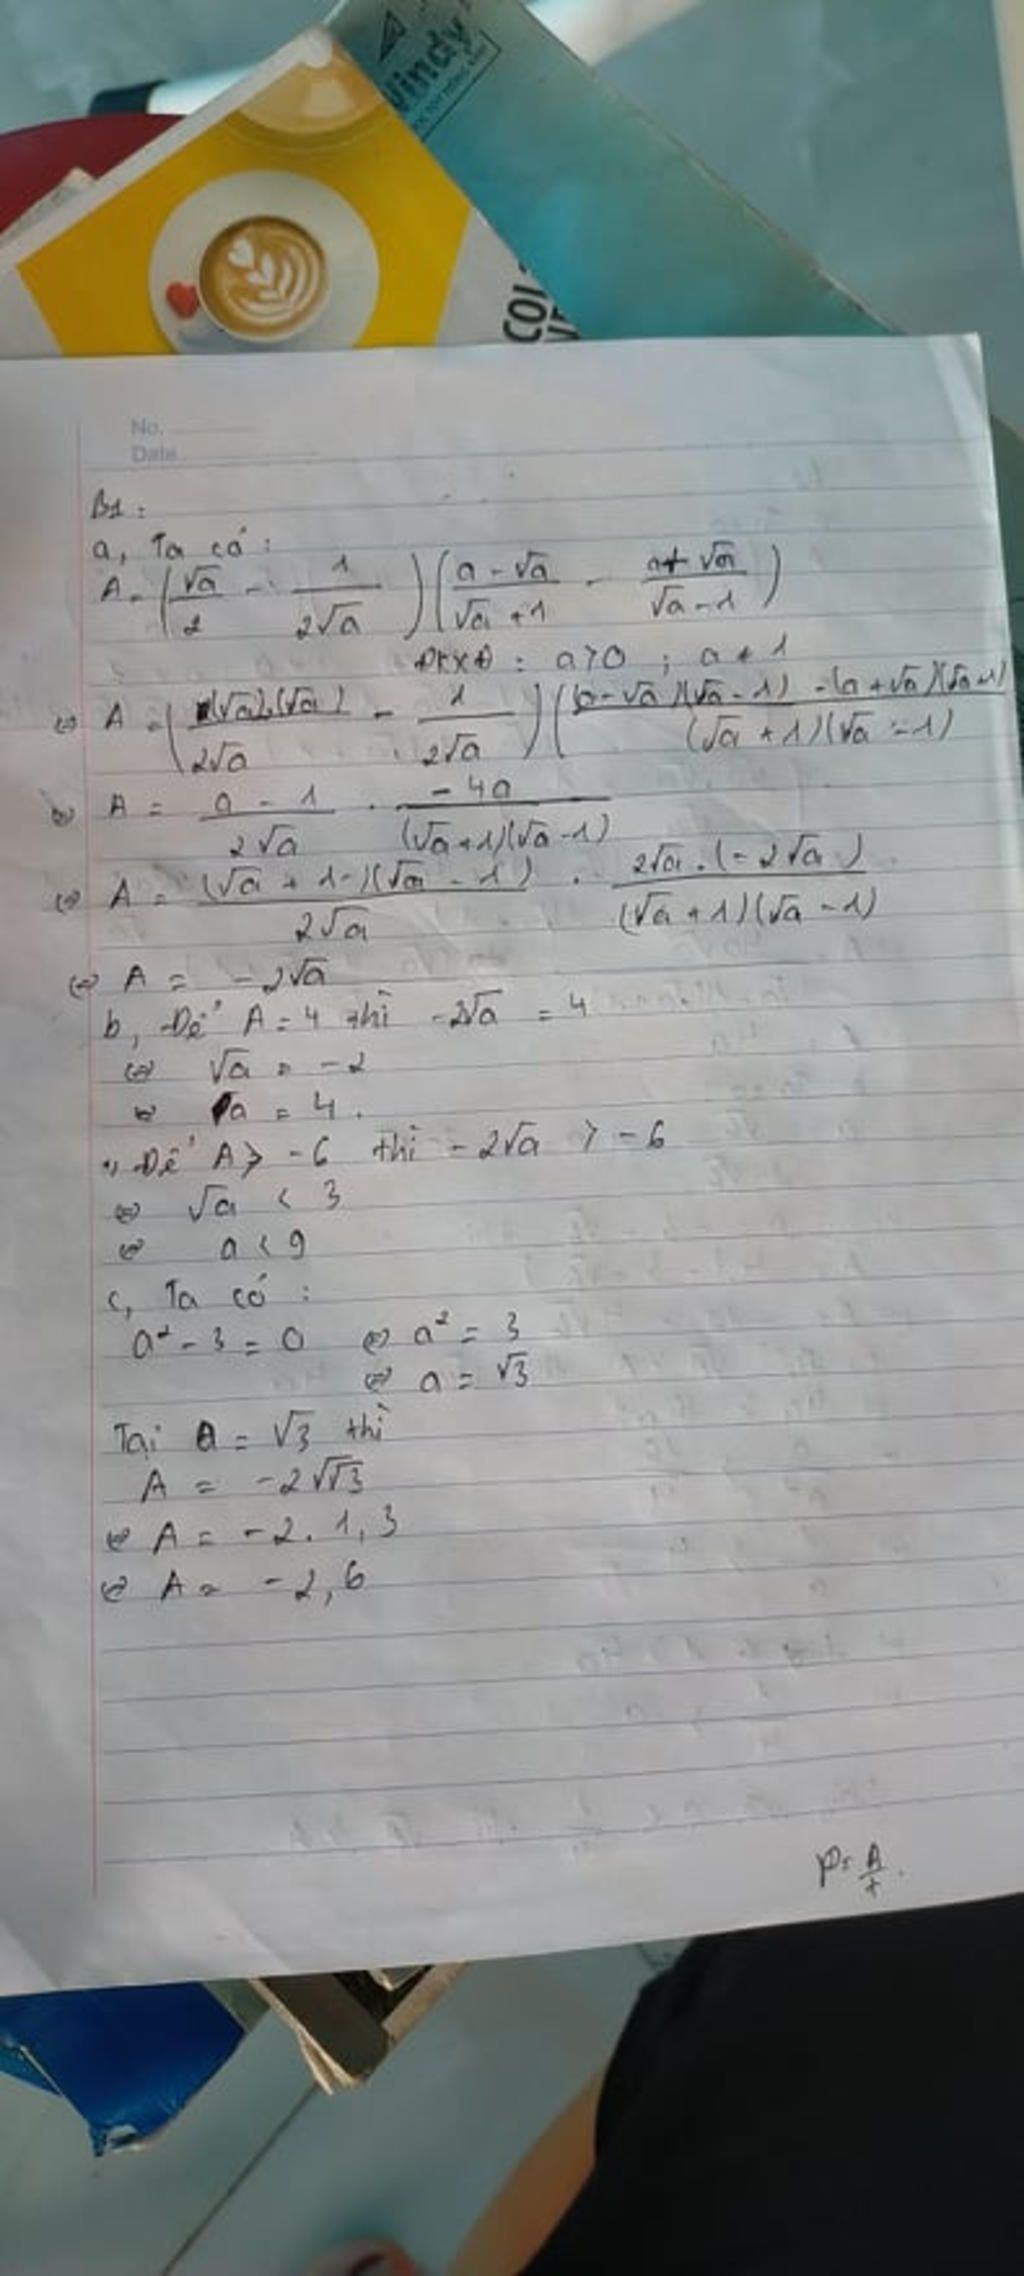 Windy
COL
No.
Date
B1:
a, Ta có:
A = (√a/2 - 1/2√a)(a - √a/√a + 1 - a + √a/√a - 1)
ĐKXĐ: a > 0; a ≠ 1
(=) A = ((√a).(√a)/2√a - 1/2√a)((a - √a)(√a - 1) - (a + √a)(√a + 1)/(√a + 1)(√a - 1))
(=) A = a - 1/2√a . -4a/(√a + 1)(√a - 1)
(=) A = (√a + 1)(√a - 1)/2√a . 2√a.(-2√a)/(√a + 1)(√a - 1)
(=) A = -2√a
b, Để A = 4 thì -2√a = 4
(=) √a = -2
(=) a = 4.
Để A > -6 thì -2√a > -6
(=) √a < 3
(=) a < 9
c, Ta có:
a² - 3 = 0 (=) a² = 3
(=) a = √3
Tại a = √3 thì
A = -2√√3
(=) A = -2. 1,3
(=) A = -2,6
P = A/+.